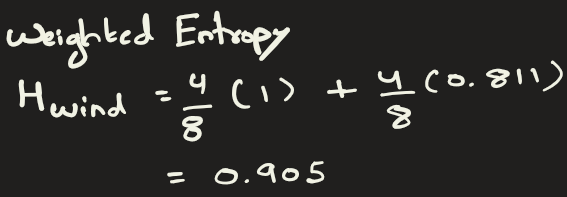 Weighted Entropy
H_wind = 4/8 (1) + 4/8 (0.811)
= 0.905